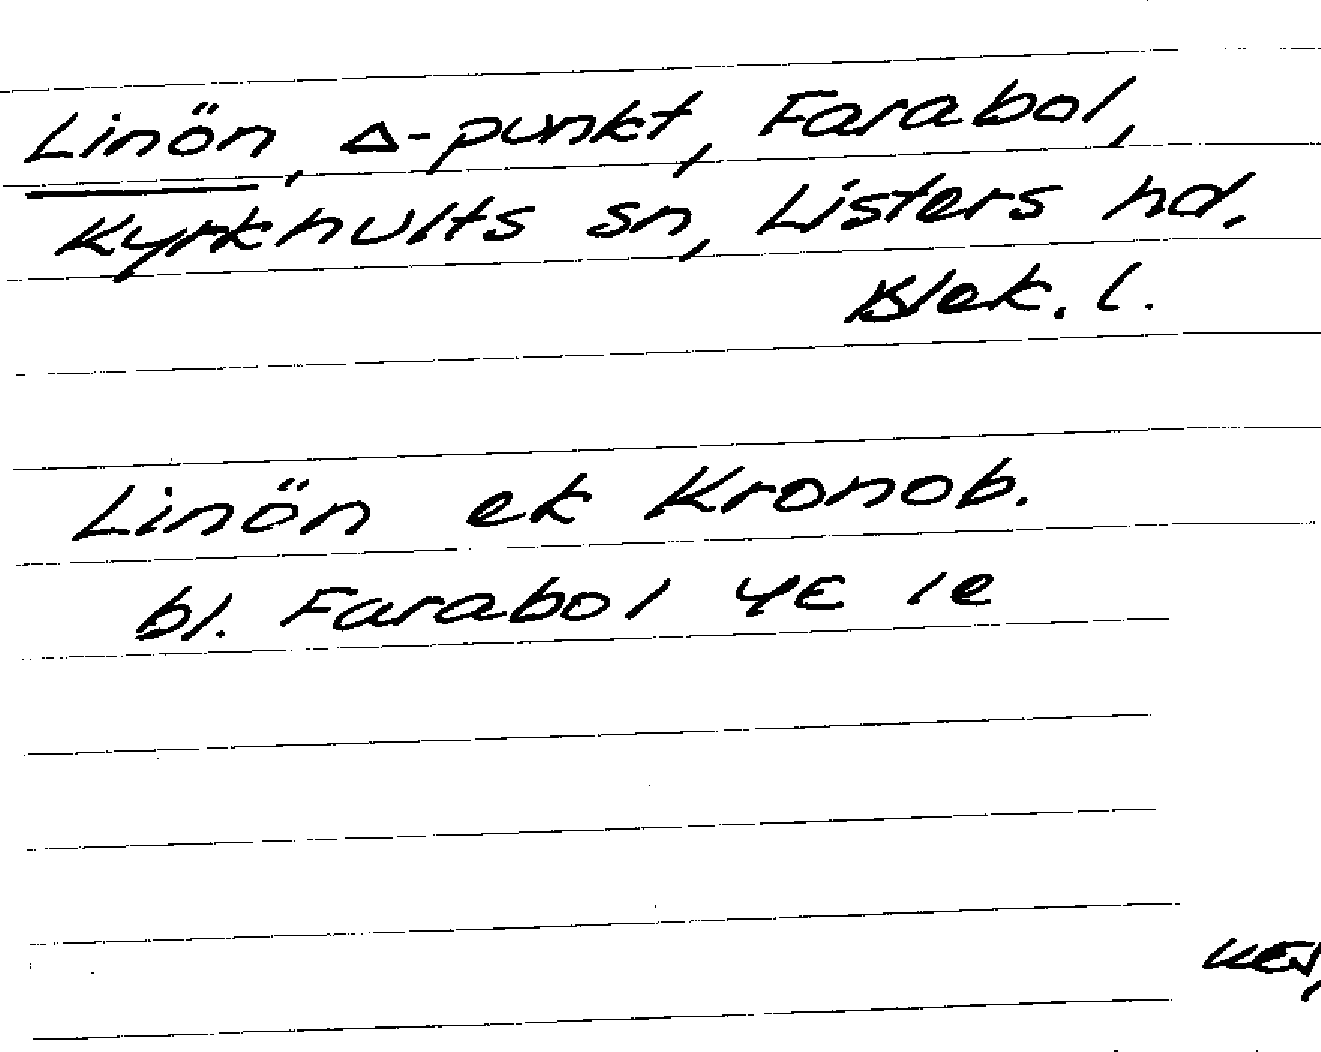 Linön, Δ-punkt, Farabol,
Kyrkhults sn, Listers hd.
Blek. l.
Linön ek Kronob.
bl. Farabol 4E 1e